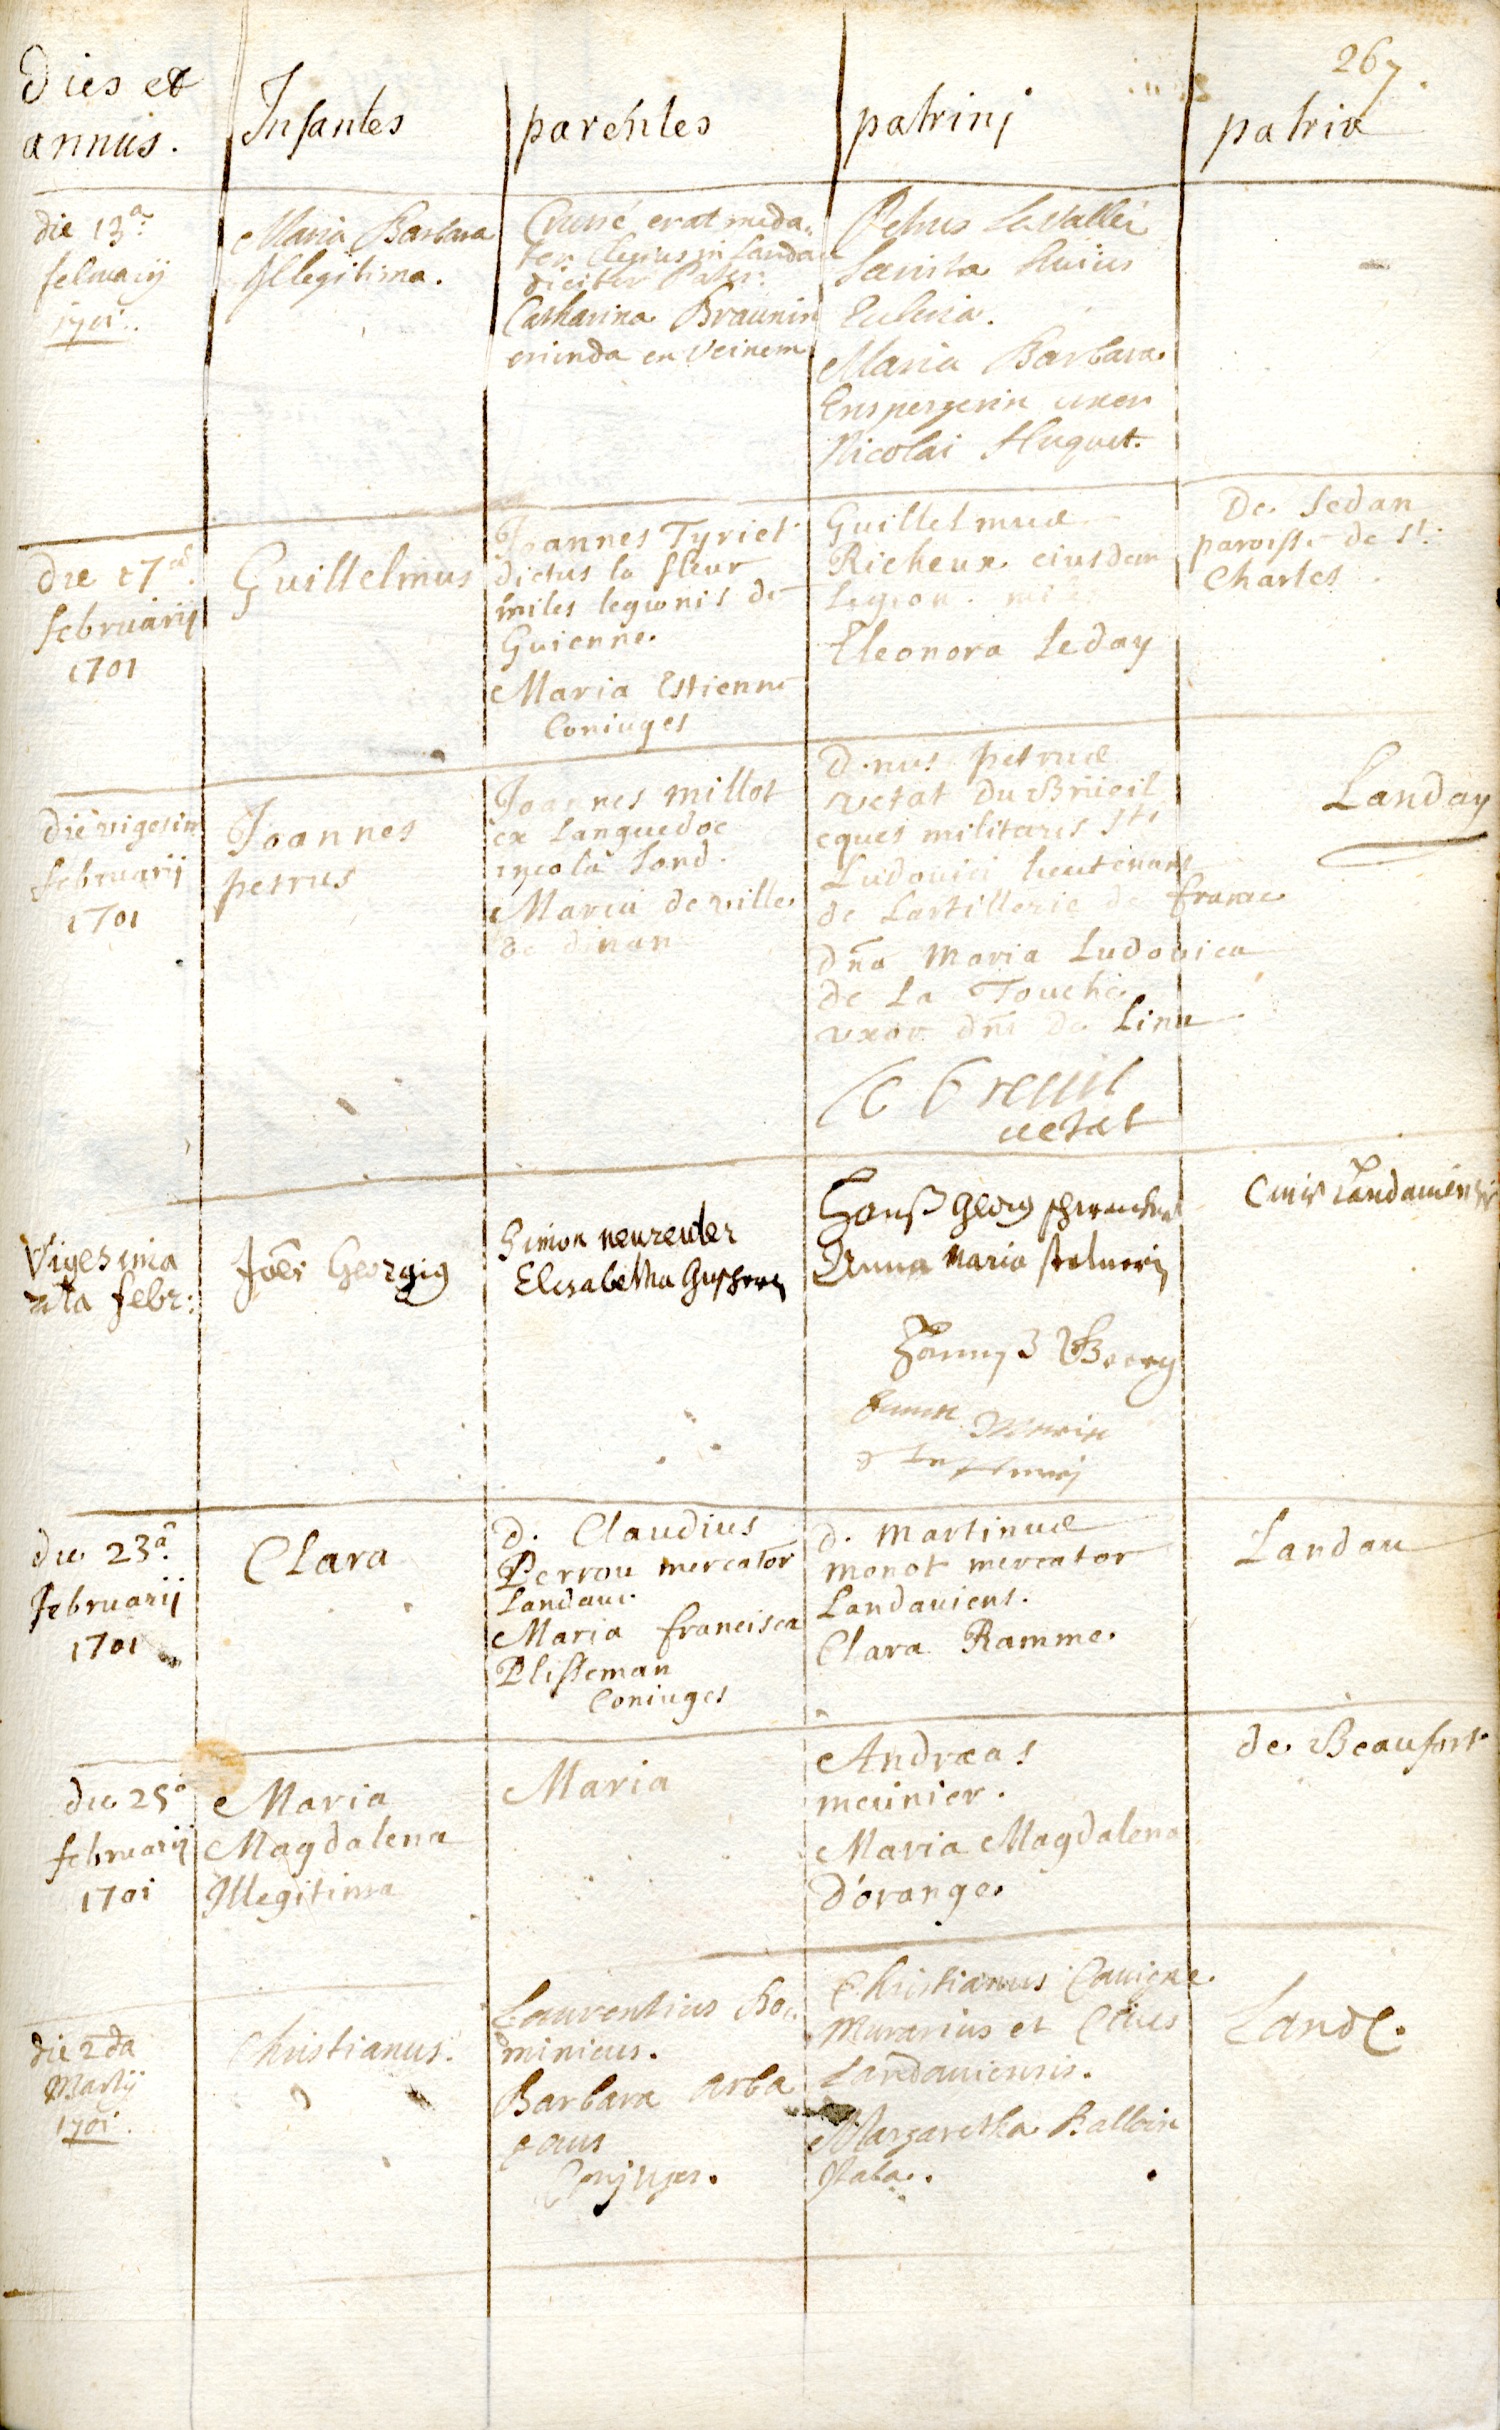 267.
dies et
annus.
Infantes
parentes
patrini
patria
die 13a
februarij
1701.
Maria Barbara
Illegitima.
erat
in Landau
dicitur Pater.
Catharina Braunin
oriunda ex Veinem
Petrus La Vallée
huius
Maria Barbara
Enspergerin uxor
Nicolai Huguet.
die 17a
februarij
1701
Guillelmus
Joannes Tyriet
dictus la fleur
miles legionis de
Guienne.
Maria Estienne
Coniuges
Guillelmus
Richeux eiusdem
Legion. miles
Eleonora Leday
De Sedan
paroisse de St.
Charles
die vigesim
februarij
1701
Joannes
petrus
Joannes Millot
ex Languedoc
incola Land.
Maria de ville
de dinan
D.nus petrus
vetat Du Brüeil
eques militaris Sti
Ludovici lieutenant
de Lartillerie de france
Dña Maria Ludovica
de La Touche
vxor dñi de Line
vetat
Landau
Vigesima
febr:
Joës Georgig
Simon neureuter
Elisabetha
Hanß Georg
Anna Maria
Civis Landaviensis
Georg
die 23a
februarij
1701
Clara
d. Claudius
Perrou mercator
Landaui.
Maria francisca
Plisseman
Coniuges
d. Martinus
Monot mercator
Landauiens.
Clara Ramme.
Landau
die 25a
februarij
1701
Maria
Magdalena
Illegitima
Maria
Andræas
meunier.
Maria Magdalena
D'orange.
de Beaufort
die 2da
Martij
1701.
Christianus.
Laurentius Do-
minicus.
Barbara
Conjuges.
Christianus Cavigne.
Murarius et Civis
Landaviensis.
Margaretha
Land.